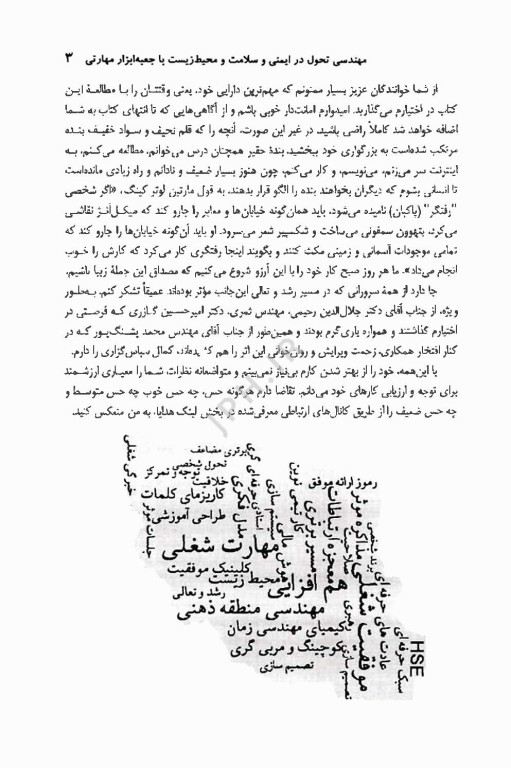 مهندسی تحول در ایمنی و سلامت و محیط‌زیست با جعبه‌ابزار مهارتی ۳
از شما خوانندگان عزیز بسیار ممنونم که مهم‌ترین دارایی خود، یعنی وقتتان را با مطالعهٔ این
کتاب در اختیارم می‌گذارید. امیدوارم امانت‌دار خوبی باشم و از آگاهی‌هایی که تا انتهای کتاب به شما
اضافه خواهد شد کاملاً راضی باشید. در غیر این صورت، آنچه را که قلم نحیف و سواد خفیف بنده
مرتکب شده‌است به بزرگواری خود ببخشید. بندهٔ حقیر همچنان درس می‌خوانم، مطالعه می‌کنم، به
اینترنت سر می‌زنم، می‌نویسم، و کار می‌کنم، چون هنوز بسیار ضعیف و نادانم و راه زیادی مانده‌است
تا انسانی بشوم که دیگران بخواهند بنده را الگو قرار بدهند. به قول مارتین لوتر کینگ، «اگر شخصی
"رفتگر" (پاکبان) نامیده می‌شود، باید همان‌گونه خیابان‌ها و معابر را جارو کند که میکل‌آنژ نقاشی
می‌کرد، بتهوون سمفونی می‌ساخت و شکسپیر شعر می‌سرود. او باید آن‌گونه خیابان‌ها را جارو کند که
تمامی موجودات آسمانی و زمینی مکث کنند و بگویند اینجا رفتگری کار می‌کرد که کارش را خوب
انجام می‌داد». ما هر روز صبح کار خود را با این آرزو شروع می‌کنیم که مصداق این جملهٔ زیبا باشیم.
جا دارد از همهٔ سرورانی که در مسیر رشد و تعالی این‌جانب مؤثر بوده‌اند عمیقاً تشکر کنم. به‌طور
ویژه، از جناب آقای دکتر جلال‌الدین رحیمی، مهندس ثمری، دکتر امیرحسین گازری که فرصتی در
اختیارم گذاشتند و همواره یاری‌گرم بودند و همین‌طور از جناب آقای مهندس محمد پشنگ‌پور که در
کنار افتخار همکاری، زحمت ویرایش و روان‌خوانی این اثر را هم کشیده‌اند، کمال سپاس‌گزاری را دارم.
با این‌همه، خود را از بهتر شدن کارم بی‌نیاز نمی‌بینم و متواضعانه نظرات شما را معیاری ارزشمند
برای توجه و ارزیابی کارهای خود می‌دانم. تقاضا دارم هرگونه حس، چه حس خوب چه حس متوسط و
چه حس ضعیف را از طریق کانال‌های ارتباطی معرفی‌شده در بخش لینک هدایا، به من منعکس کنید.
برتری مضاعف
تحول شخصی
توجه و تمرکز
خلاقیت
کاریزمای کلمات
طراحی آموزشی
خبرگی شغلی
جلسات موثر
مدل فکری
استادی حرفه‌ای گری
سیستم سازی
کار تیمی نوین
رموز ارائه موفق
مذاکره موثر
معجزه ارتباطات
مسیر برتری
هوش مالی
مهارت شغلی
کلینیک موفقیت
محیط زیست
هم افزایی
رشد و تعالی
مهندسی منطقه ذهنی
کیمیای مهندسی زمان
کوچینگ و مربی گری
تصمیم سازی
صلاحیت
برند شخصی
رهبری
تصمیم سازی
موفقیت شغلی
عادت های حرفه ای
سبک حرفه ای
HSE
JPH.IR